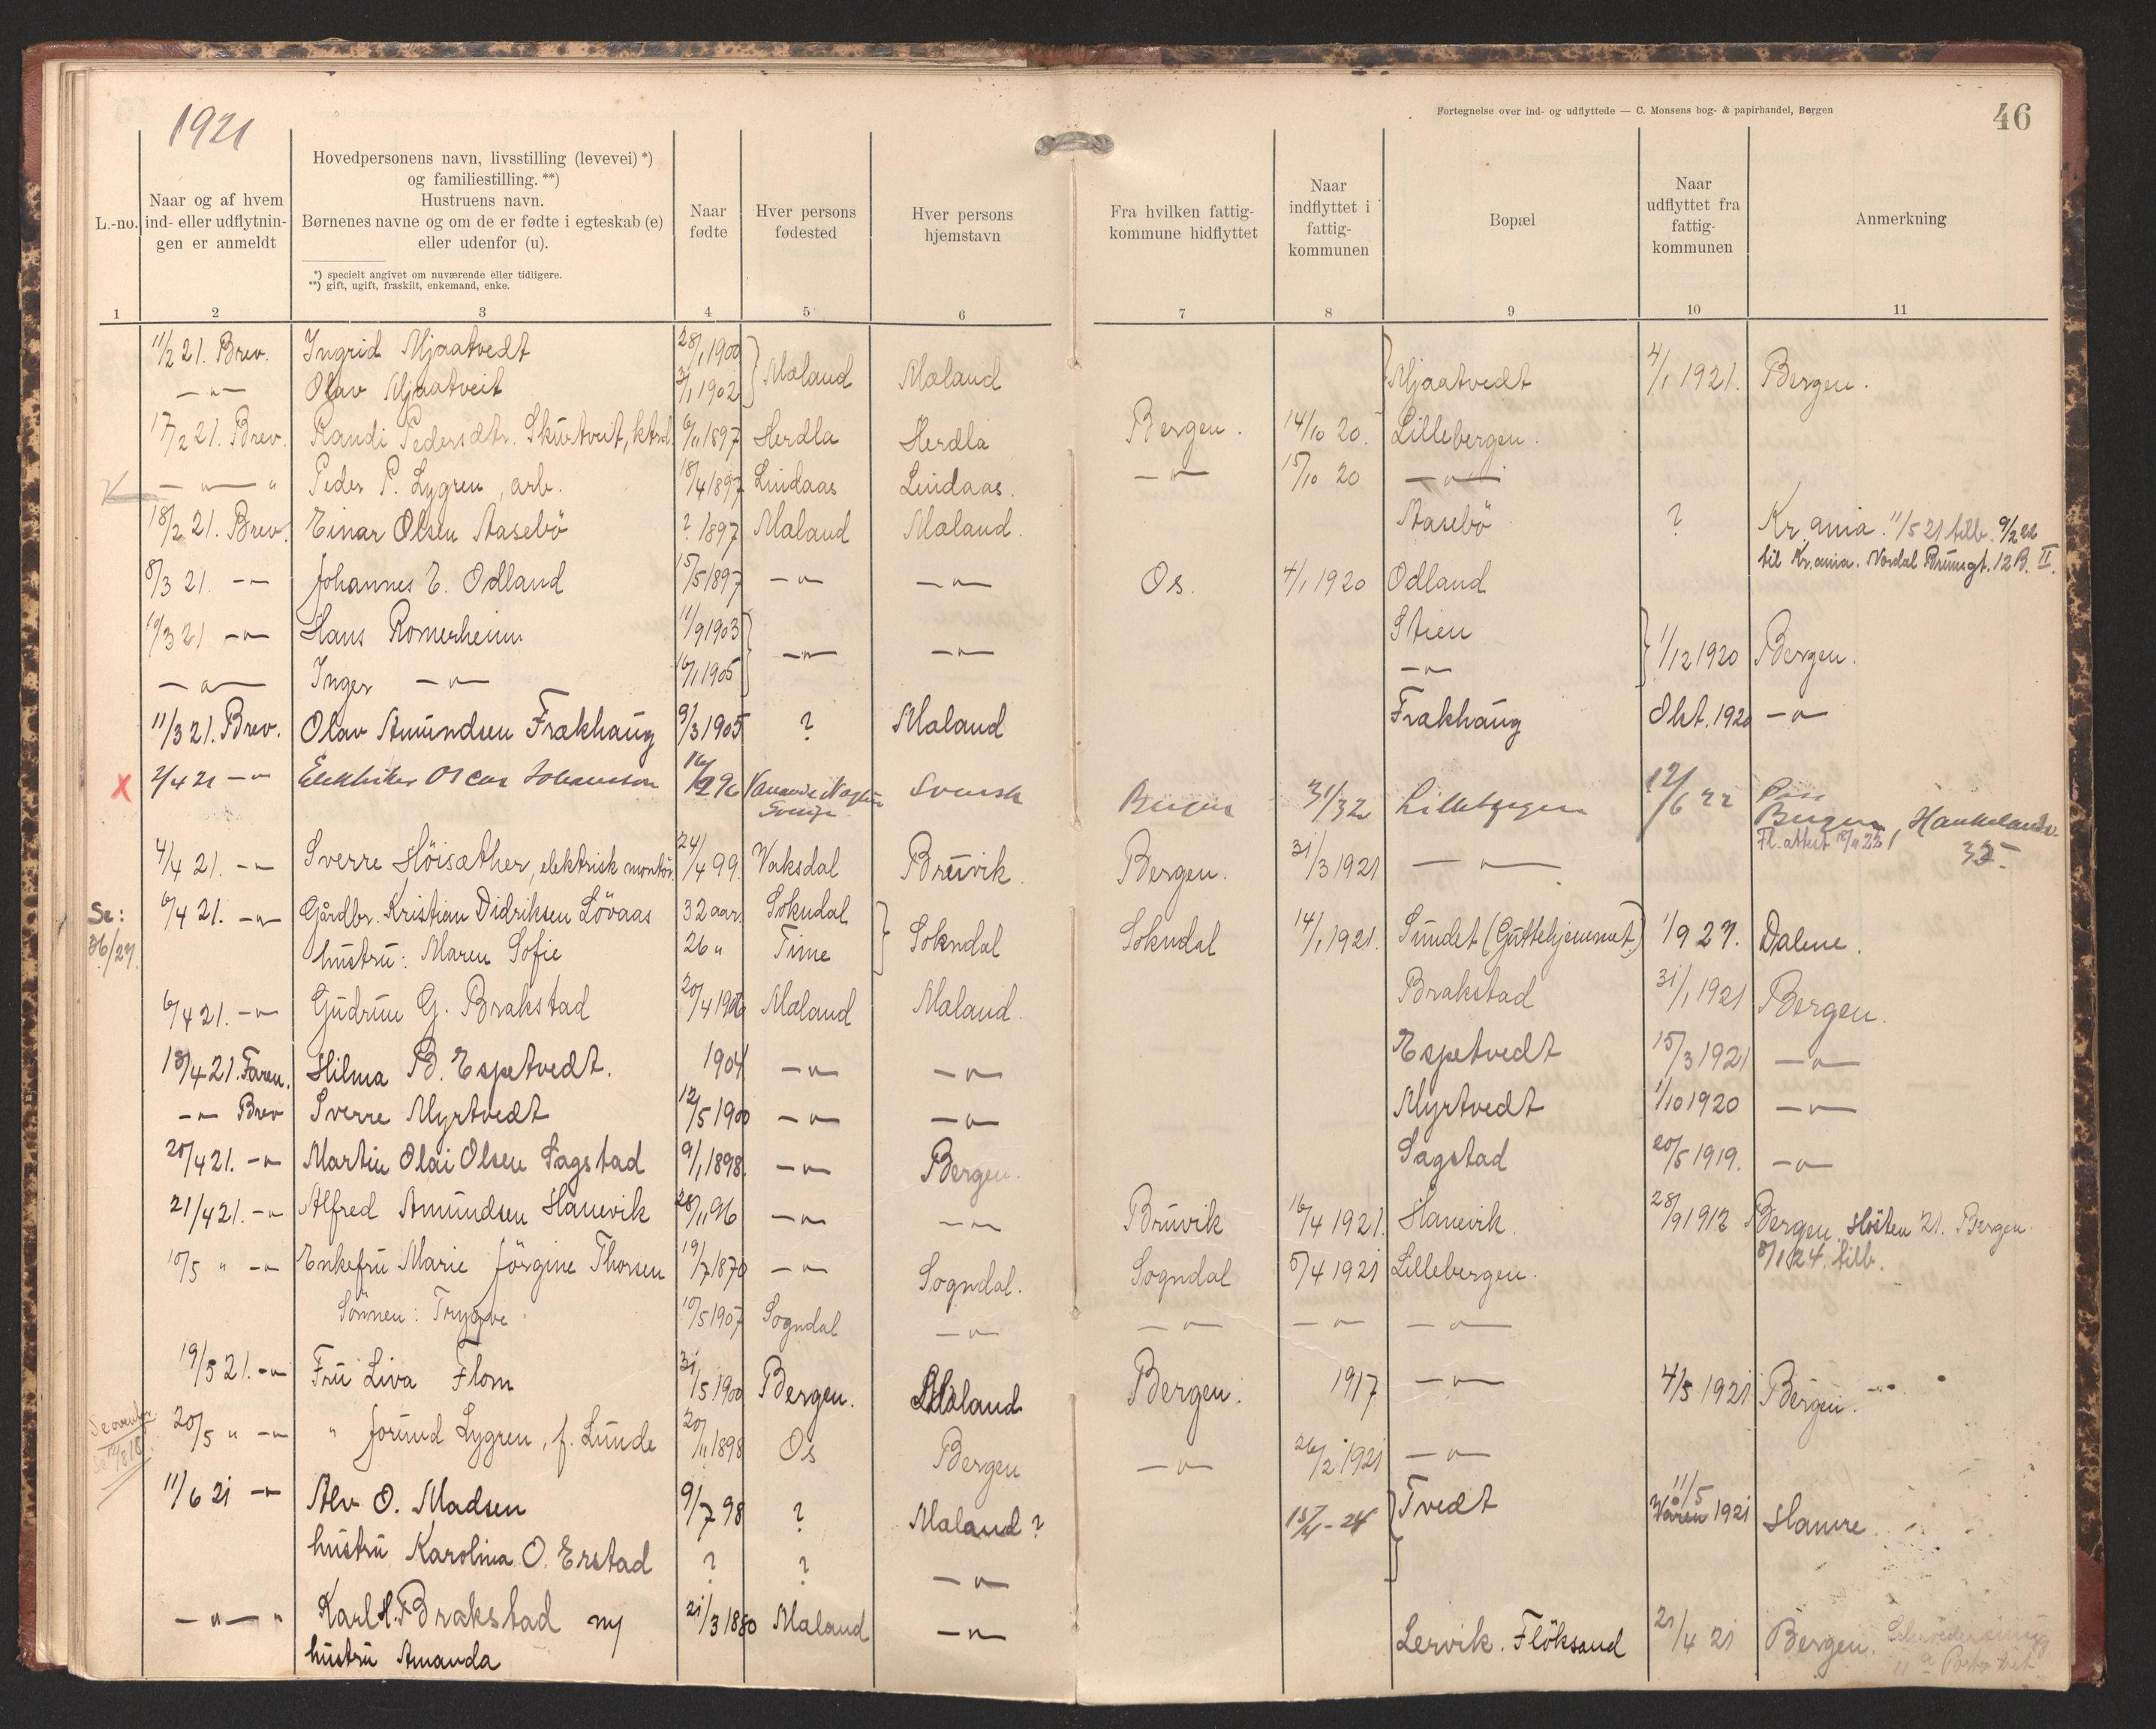 1921
Fortegnelse over ind- og udflyttede — C. Monsens bog- & papirhandel, Bergen
46
L.-no.
Naar og af hvem
ind- eller udflytnin-
gen er anmeldt
Hovedpersonens navn, livsstilling (levevei) *)
og familiestilling. **)
Hustruens navn.
Børnenes navne og om de er fødte i egteskab (e)
eller udenfor (u).
*) specielt angivet om nuværende eller tidligere.
**) gift, ugift, fraskilt, enkemand, enke.
Naar
fødte
Hver persons
fødested
Hver persons
hjemstavn
Fra hvilken fattig-
kommune hidflyttet
Naar
indflyttet i
fattig-
kommunen
Bopæl
Naar
udflyttet fra
fattig-
kommunen
Anmerkning
1 2 3 4 5 6 7 8 9 10 11
11/2 21. Brev. Ingrid Mjaatvedt 28/1 1900 Mæland Mæland Mjaatvedt 4/1 1921. Bergen.
—„— Olav Mjaatveit 3/1 1902
17/2 21. Brev. Randi Pedersdtr. Skurtveit, 6/11 1897 Herdla Herdla Bergen. 14/10 20. Lillebergen.
—„— „ Peder P. Lygren, arb. 18/4 1897 Lindaas Lindaas. —„— 15/10 20 —„—
18/2 21. Brev. Einar Olsen Aasebö ? 1897 Mæland Mæland. Aasebö ? Kr.ania. 11/5 21 tilb. 9/2 22
til Kr.ania. Nordal Brunsgt. 12 B. II.
8/3 21. —„— Johannes E. Odland 15/5 1897 —„— —„— Os. 4/1 1920 Odland
10/3 21 —„— Hans Romerheim 11/9 1903 —„— —„— Stien 1/12 1920 Bergen.
—„— Inger —„— 16/1 1905 —„—
11/3 21. Brev. Olav Amundsen Frækhaug 9/3 1905 ? Mæland Frækhaug Okt. 1920 —„—
x 2/4 21 —„— Elektriker Oscar Johansson Svensk Bergen Lillebergen 12/6 22
Sverige Bergen, Haukelandsv.
Fl. attest
4/4 21. —„— Sverre Höisæther, elektrisk montör. 24/4 99. Vaksdal Bruvik. Bergen. 31/3 1921 —„—
Se: 6/4 21. —„— Gårdbr. Kristian Didriksen Lövaas 32 aar. Sokndal Sokndal Sokndal 14/1 1921. Sundet (Guttehjemmet) 1/9 27. Dalene.
36/27. hustru: Maren Sofie 26 „ Time
6/4 21. —„— Gudrun G. Brakstad 20/4 1906 Mæland Mæland. Brakstad 31/1 1921 Bergen.
18/4 21. Faren. Hilma B. Espetvedt. 1904 —„— —„— Espetvedt 15/3 1921 —„—
—„— Brev Sverre Myrtvedt 12/5 1900 —„— —„— Myrtvedt 1/10 1920 —„—
20/4 21. —„— Martin Olai Olsen Sagstad 9/1 1898. —„— Bergen. Sagstad 20/5 1919. —„—
21/4 21. —„— Alfred Amundsen Hanevik 28/11 96 —„— —„— Bruvik 16/4 1921. Hanevik. 28/9 1912 Bergen. Hösten 21. Bergen.
8/1 24. tilb.
10/5 „ —„— Enkefru Marie Jörgine Thorsen 19/7 1870 —„— Sogndal. Sogndal 5/4 1921 Lillebergen.
Sönnen: Trygve 10/5 1907 Sogndal —„— —„— —„— —„—
19/5 21. —„— Fru Liva Flom 31/5 1900 Bergen. Mæland Bergen. 1917 —„— 4/5 1921 Bergen.
20/5 „ —„— „ Jorund Lygren, f. Lunde 20/11 1898 Os Bergen —„— 26/2 1921 —„—
11/6 21 —„— Alv O. Madsen 9/7 98 ? Mæland ? Tvedt 11/5 1921 Hamre
hustru Karolina O. Erstad ? ? —„—
—„— „ Karl H. Brakstad 21/3 1880 Mæland —„— Lervik. Flöksand 21/4 21 Bergen.
hustru Amanda